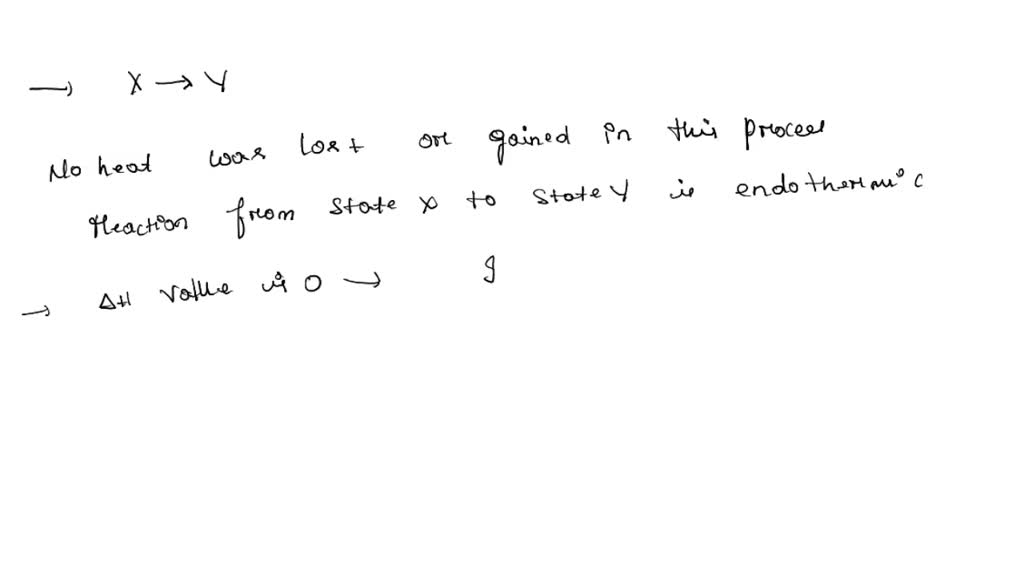 → X → Y
No heat was lost or gained in this process
Reaction from state X to state Y is endothermic
→ ΔH value is 0 → I